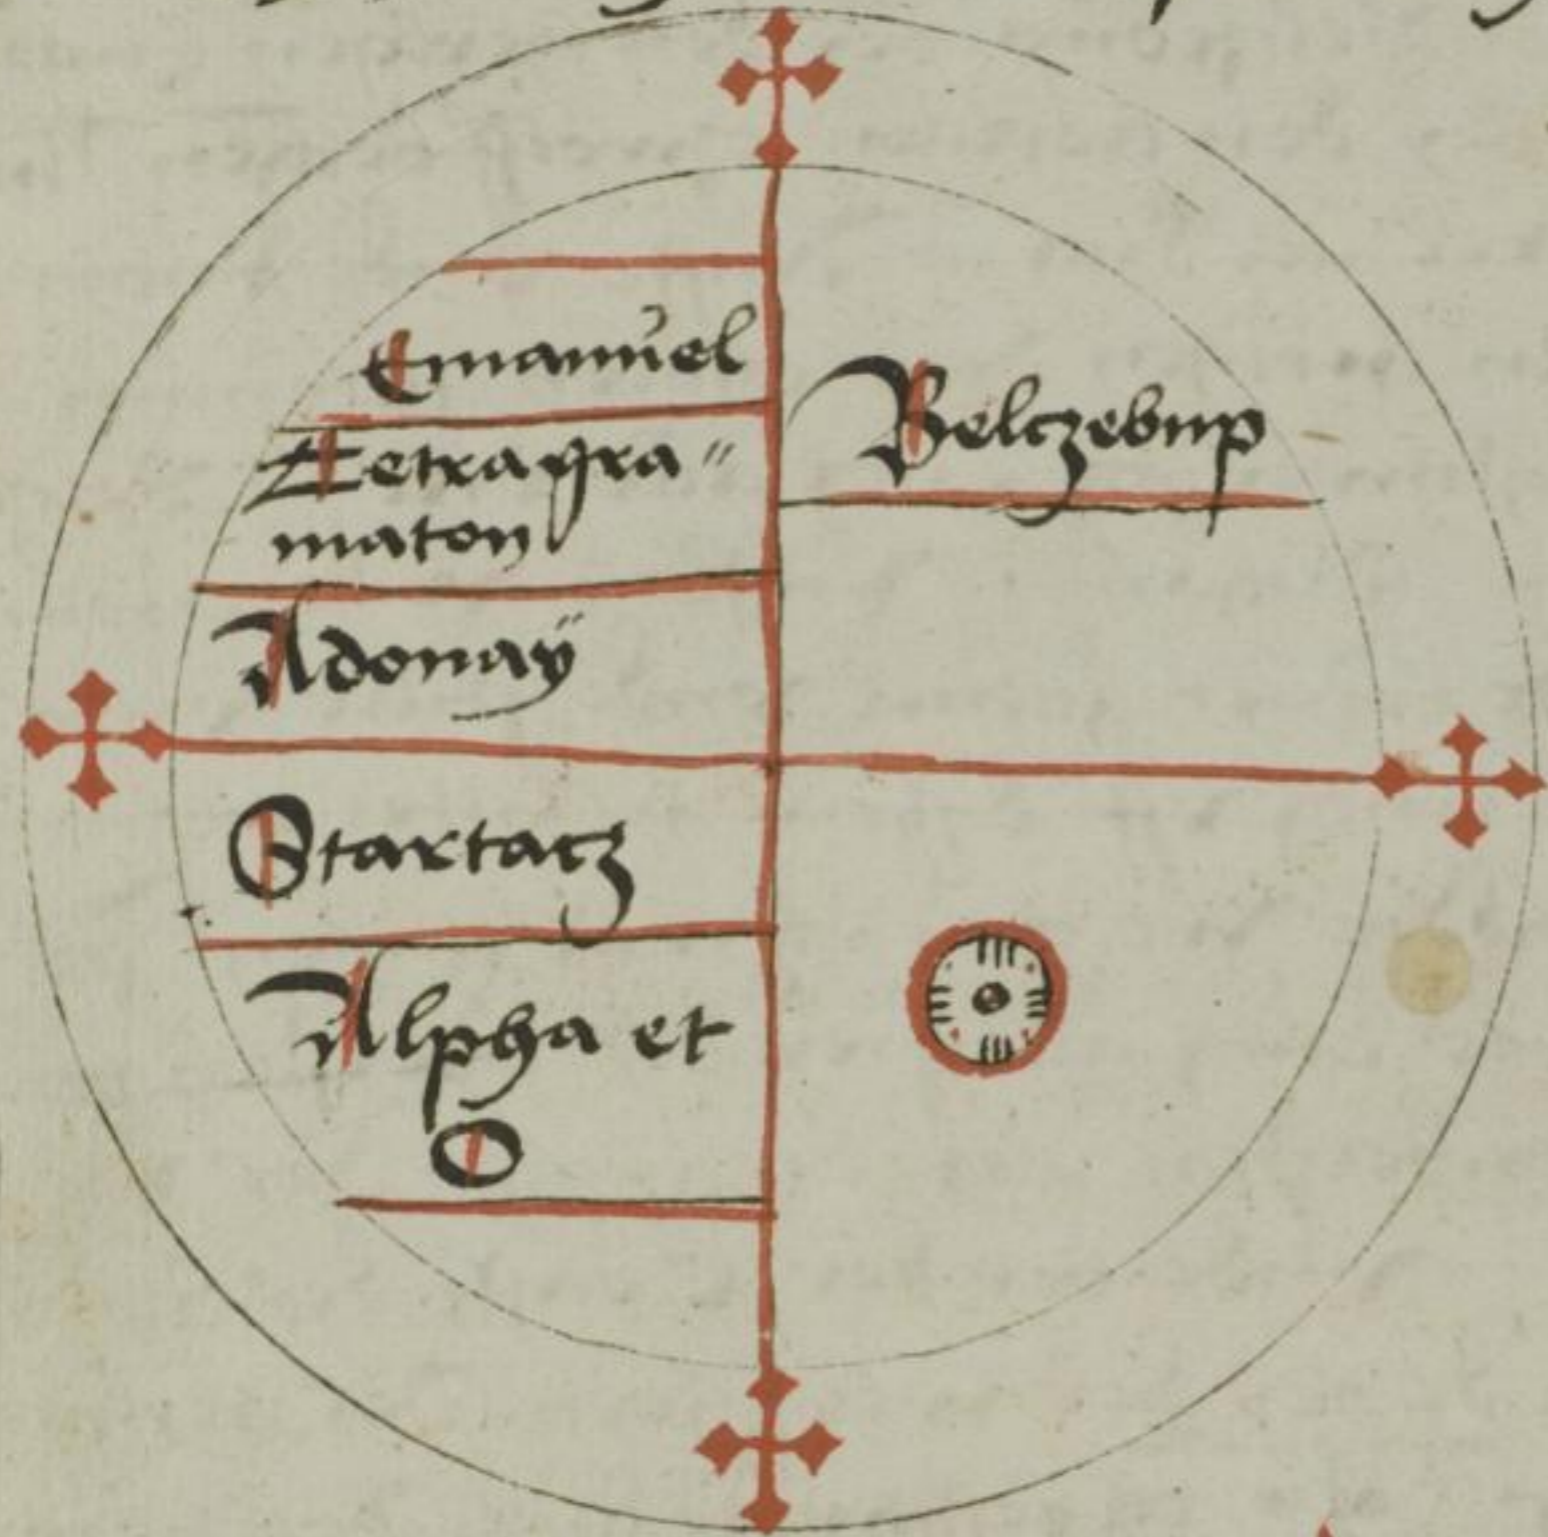 Emanuel
Tetragra=
maton
Adonaÿ
Startacz
Alpha et
O
Belczebup